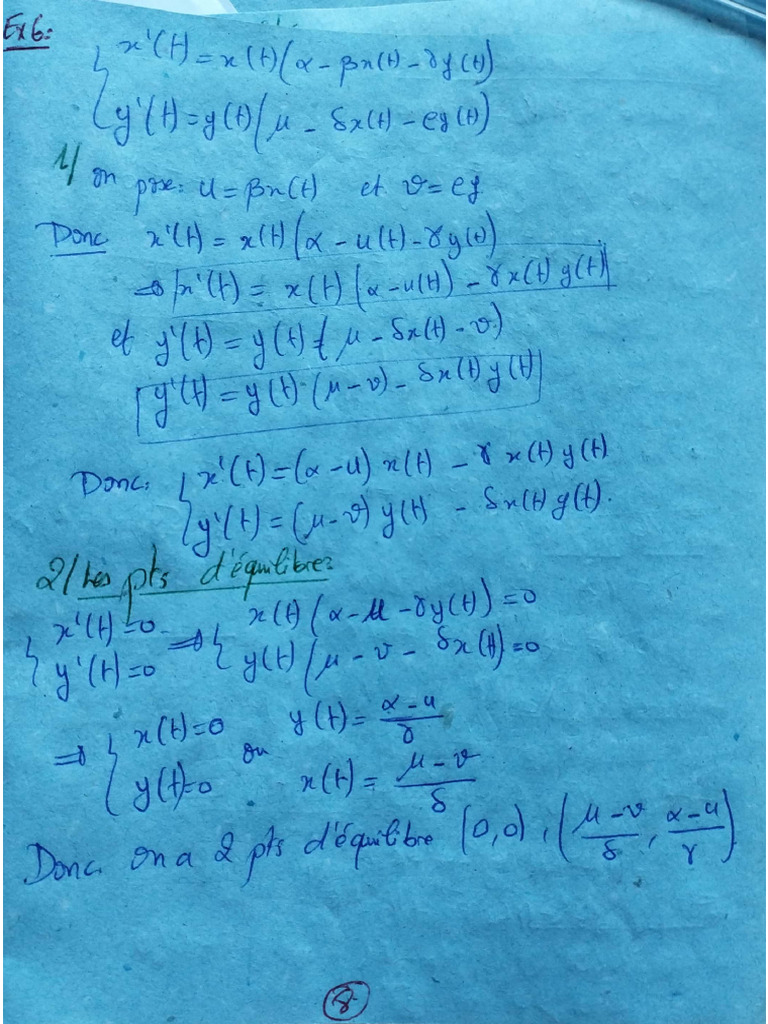 Ex6:
{ x'(t) = x(t)(α - βx(t) - γy(t))
{ y'(t) = y(t)(μ - δx(t) - ey(t))
1/ on pose: u = βx(t) et v = ey
Donc x'(t) = x(t)(α - u(t) - γy(t))
⇒ x'(t) = x(t)(α - u(t)) - γx(t)y(t)
et y'(t) = y(t)(μ - δx(t) - v)
y'(t) = y(t)·(μ - v) - δx(t)y(t)
Donc. { x'(t) = (α - u) x(t) - γ x(t) y(t)
{ y'(t) = (μ - v) y(t) - δx(t) y(t).
2/ Les pts d'équilibre:
{ x'(t) = 0 ⇒ { x(t)(α - u - γy(t)) = 0
{ y'(t) = 0 { y(t)(μ - v - δx(t)) = 0
⇒ { x(t) = 0 ou y(t) = (α - u)/γ
{ y(t) = 0 x(t) = (μ - v)/δ
Donc. on a 2 pts d'équilibre (0,0), ((μ - v)/δ, (α - u)/γ)
8